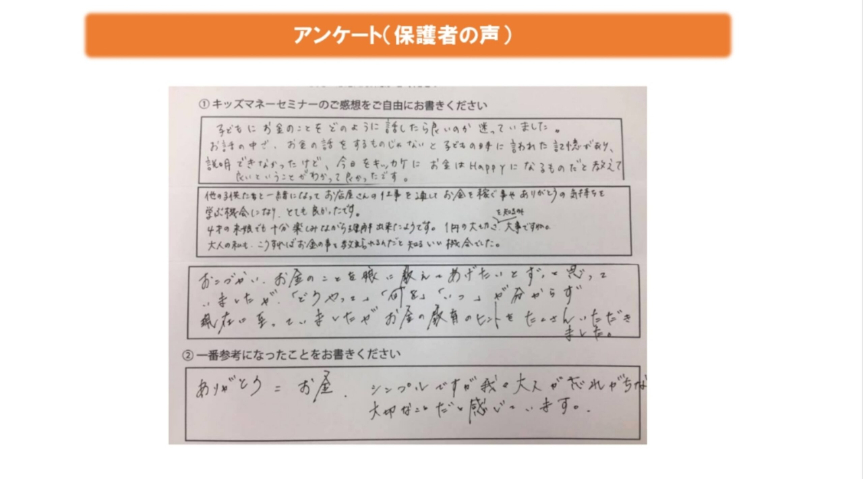 アンケート(保護者の声)
① キッズマネーセミナーのご感想をご自由にお書きください
子どもにお金のことをどのように話したら良いのか迷っていました。
お話の中で、お金の話をするものじゃないと子どもの時に言われた記憶があり、
説明できなかったけど、今日をキッカケにお金はHappyになるものだと教えて
良いということがわかって良かったです。
他の子供たちと一緒になってお店屋さんの仕事を通してお金を稼ぐ事やありがとうの気持ちを
学ぶ機会になり、とても良かったです。
を知る事が
4才の末娘でも十分楽しみながら理解出来たようです。1円の大切さ、大事ですね。
大人の私も、こうすればお金の事を教えられるんだと知るいい機会でした。
おこづかい、お金のことを娘に教えてあげたいとずっと思って
いましたが、「どうやって」「何を」「いつ」が分からず
現在に至っていましたがお金の教育のヒントをたくさんいただき
ました。
② 一番参考になったことをお書きください
ありがとう = お金、シンプルですが我々大人が忘れがちな
大切なことだと感じています。